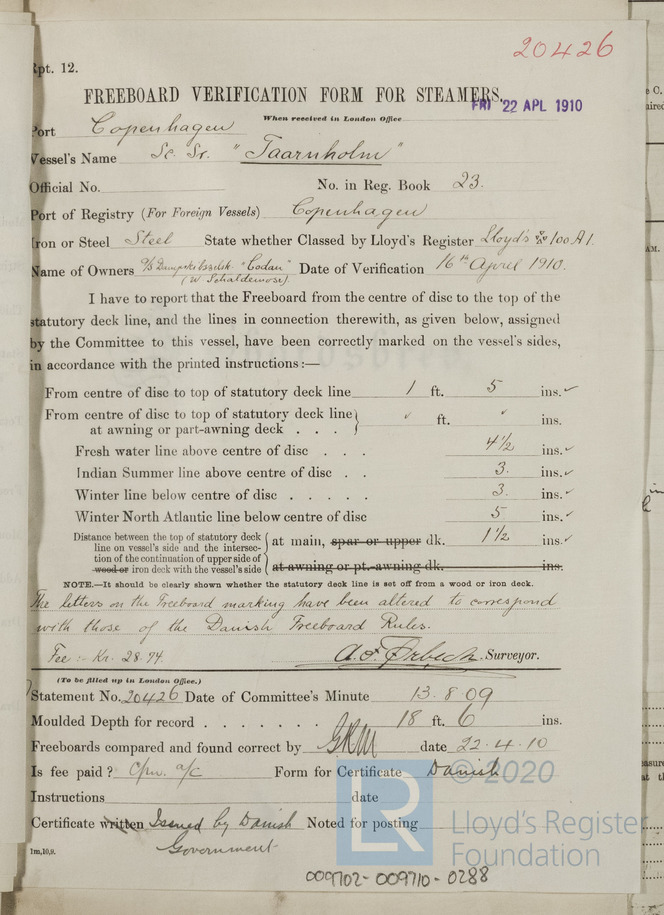 20426
Rpt. 12.
FREEBOARD VERIFICATION FORM FOR STEAMERS.
FRI 22 APL 1910
When received in London Office
Port Copenhagen
Vessel's Name Sc. Sr. "Taarnholm"
Official No. No. in Reg. Book 23.
Port of Registry (For Foreign Vessels) Copenhagen
Iron or Steel Steel State whether Classed by Lloyd's Register Lloyd's 100 A1.
Name of Owners D/S Dampskibsselsk. "Codan" Date of Verification 16th April 1910.
(W. Schaldemose).
I have to report that the Freeboard from the centre of disc to the top of the
statutory deck line, and the lines in connection therewith, as given below, assigned
by the Committee to this vessel, have been correctly marked on the vessel's sides,
in accordance with the printed instructions:—
From centre of disc to top of statutory deck line 1 ft. 5 ins. ✓
From centre of disc to top of statutory deck line
at awning or part-awning deck . . . " ft. " ins.
Fresh water line above centre of disc . . . 4½ ins. ✓
Indian Summer line above centre of disc . . 3. ins. ✓
Winter line below centre of disc . . . . . 3. ins. ✓
Winter North Atlantic line below centre of disc 5 ins. ✓
Distance between the top of statutory deck
line on vessel's side and the intersec-
tion of the continuation of upper side of
wood or iron deck with the vessel's side
at main, spar or upper dk. 1½ ins. ✓
at awning or pt.-awning dk. ins.
NOTE.—It should be clearly shown whether the statutory deck line is set off from a wood or iron deck.
The letters on the Freeboard marking have been altered to correspond
with those of the Danish Freeboard Rules.
Fee :- Kr. 28.94. Surveyor.
(To be filled up in London Office.)
Statement No. 20426 Date of Committee's Minute 13.8.09
Moulded Depth for record . . . . . . . 18 ft. 6 ins.
Freeboards compared and found correct by date 22.4.10
Is fee paid? Cpn. a/c Form for Certificate Danish
Instructions date
Certificate written Issued by Danish Noted for posting
Government
1m,10,9.
© 2020
LR
Lloyd's Register
Foundation
009702-009710-0288